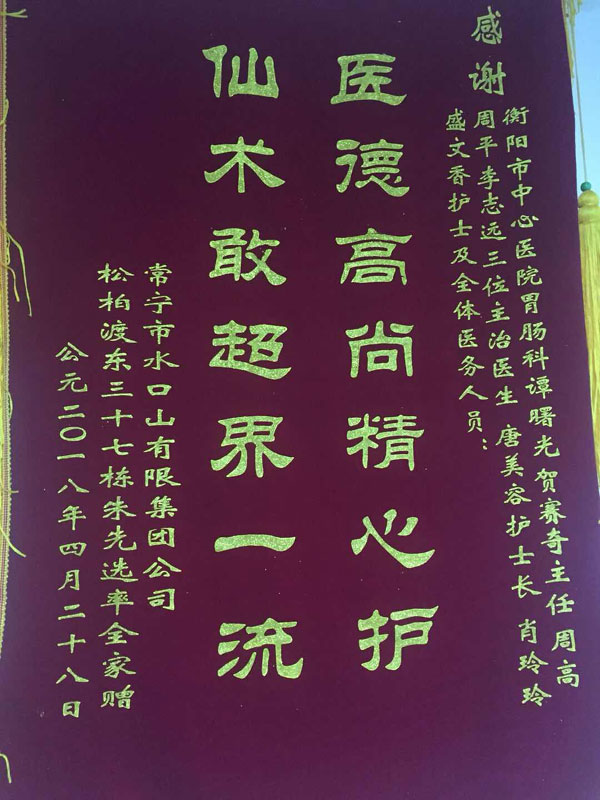 感谢
衡阳市中心医院胃肠科谭曙光贺赛奇主任 周高
周平李志远三位主治医生 唐美容护士长 肖玲玲
盛文香护士及全体医务人员：
医德高尚精心护
仙术敢超界一流
常宁市水口山有限集团公司
松柏渡东三十七栋朱先选率全家赠
公元二〇一八年四月二十八日